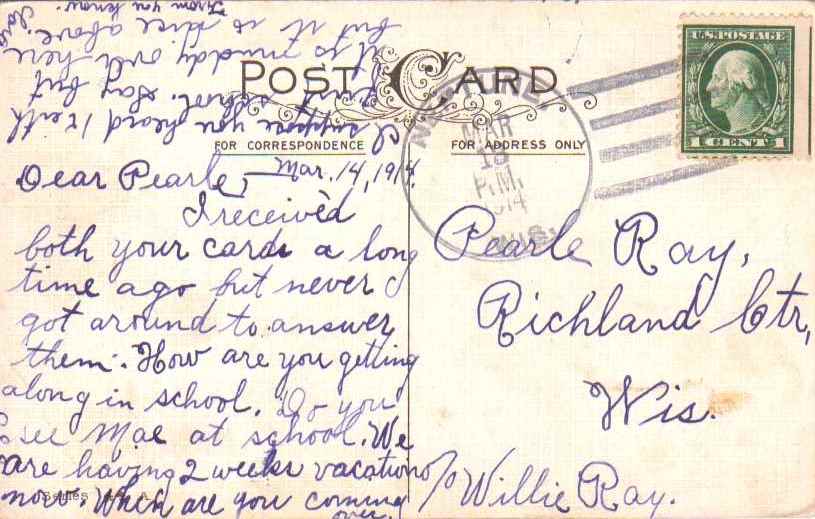 POST CARD
FOR CORRESPONDENCE
FOR ADDRESS ONLY
U.S. POSTAGE
1 CENT 1
MAR
P.M.
WIS.
Mar. 14, 1914.
Dear Pearle,
I received
both your cards a long
time ago but never I
got around to answer
them. How are you getting
along in school. Do you
see Mae at school. We
are having 2 weeks vacation
now. When are you coming
over.
I suppose you heard
school. Say but
it is muddy over here
but it is nice above.
From you know
Pearle Ray,
Richland Ctr,
Wis.
℅ Willie Ray.
Series